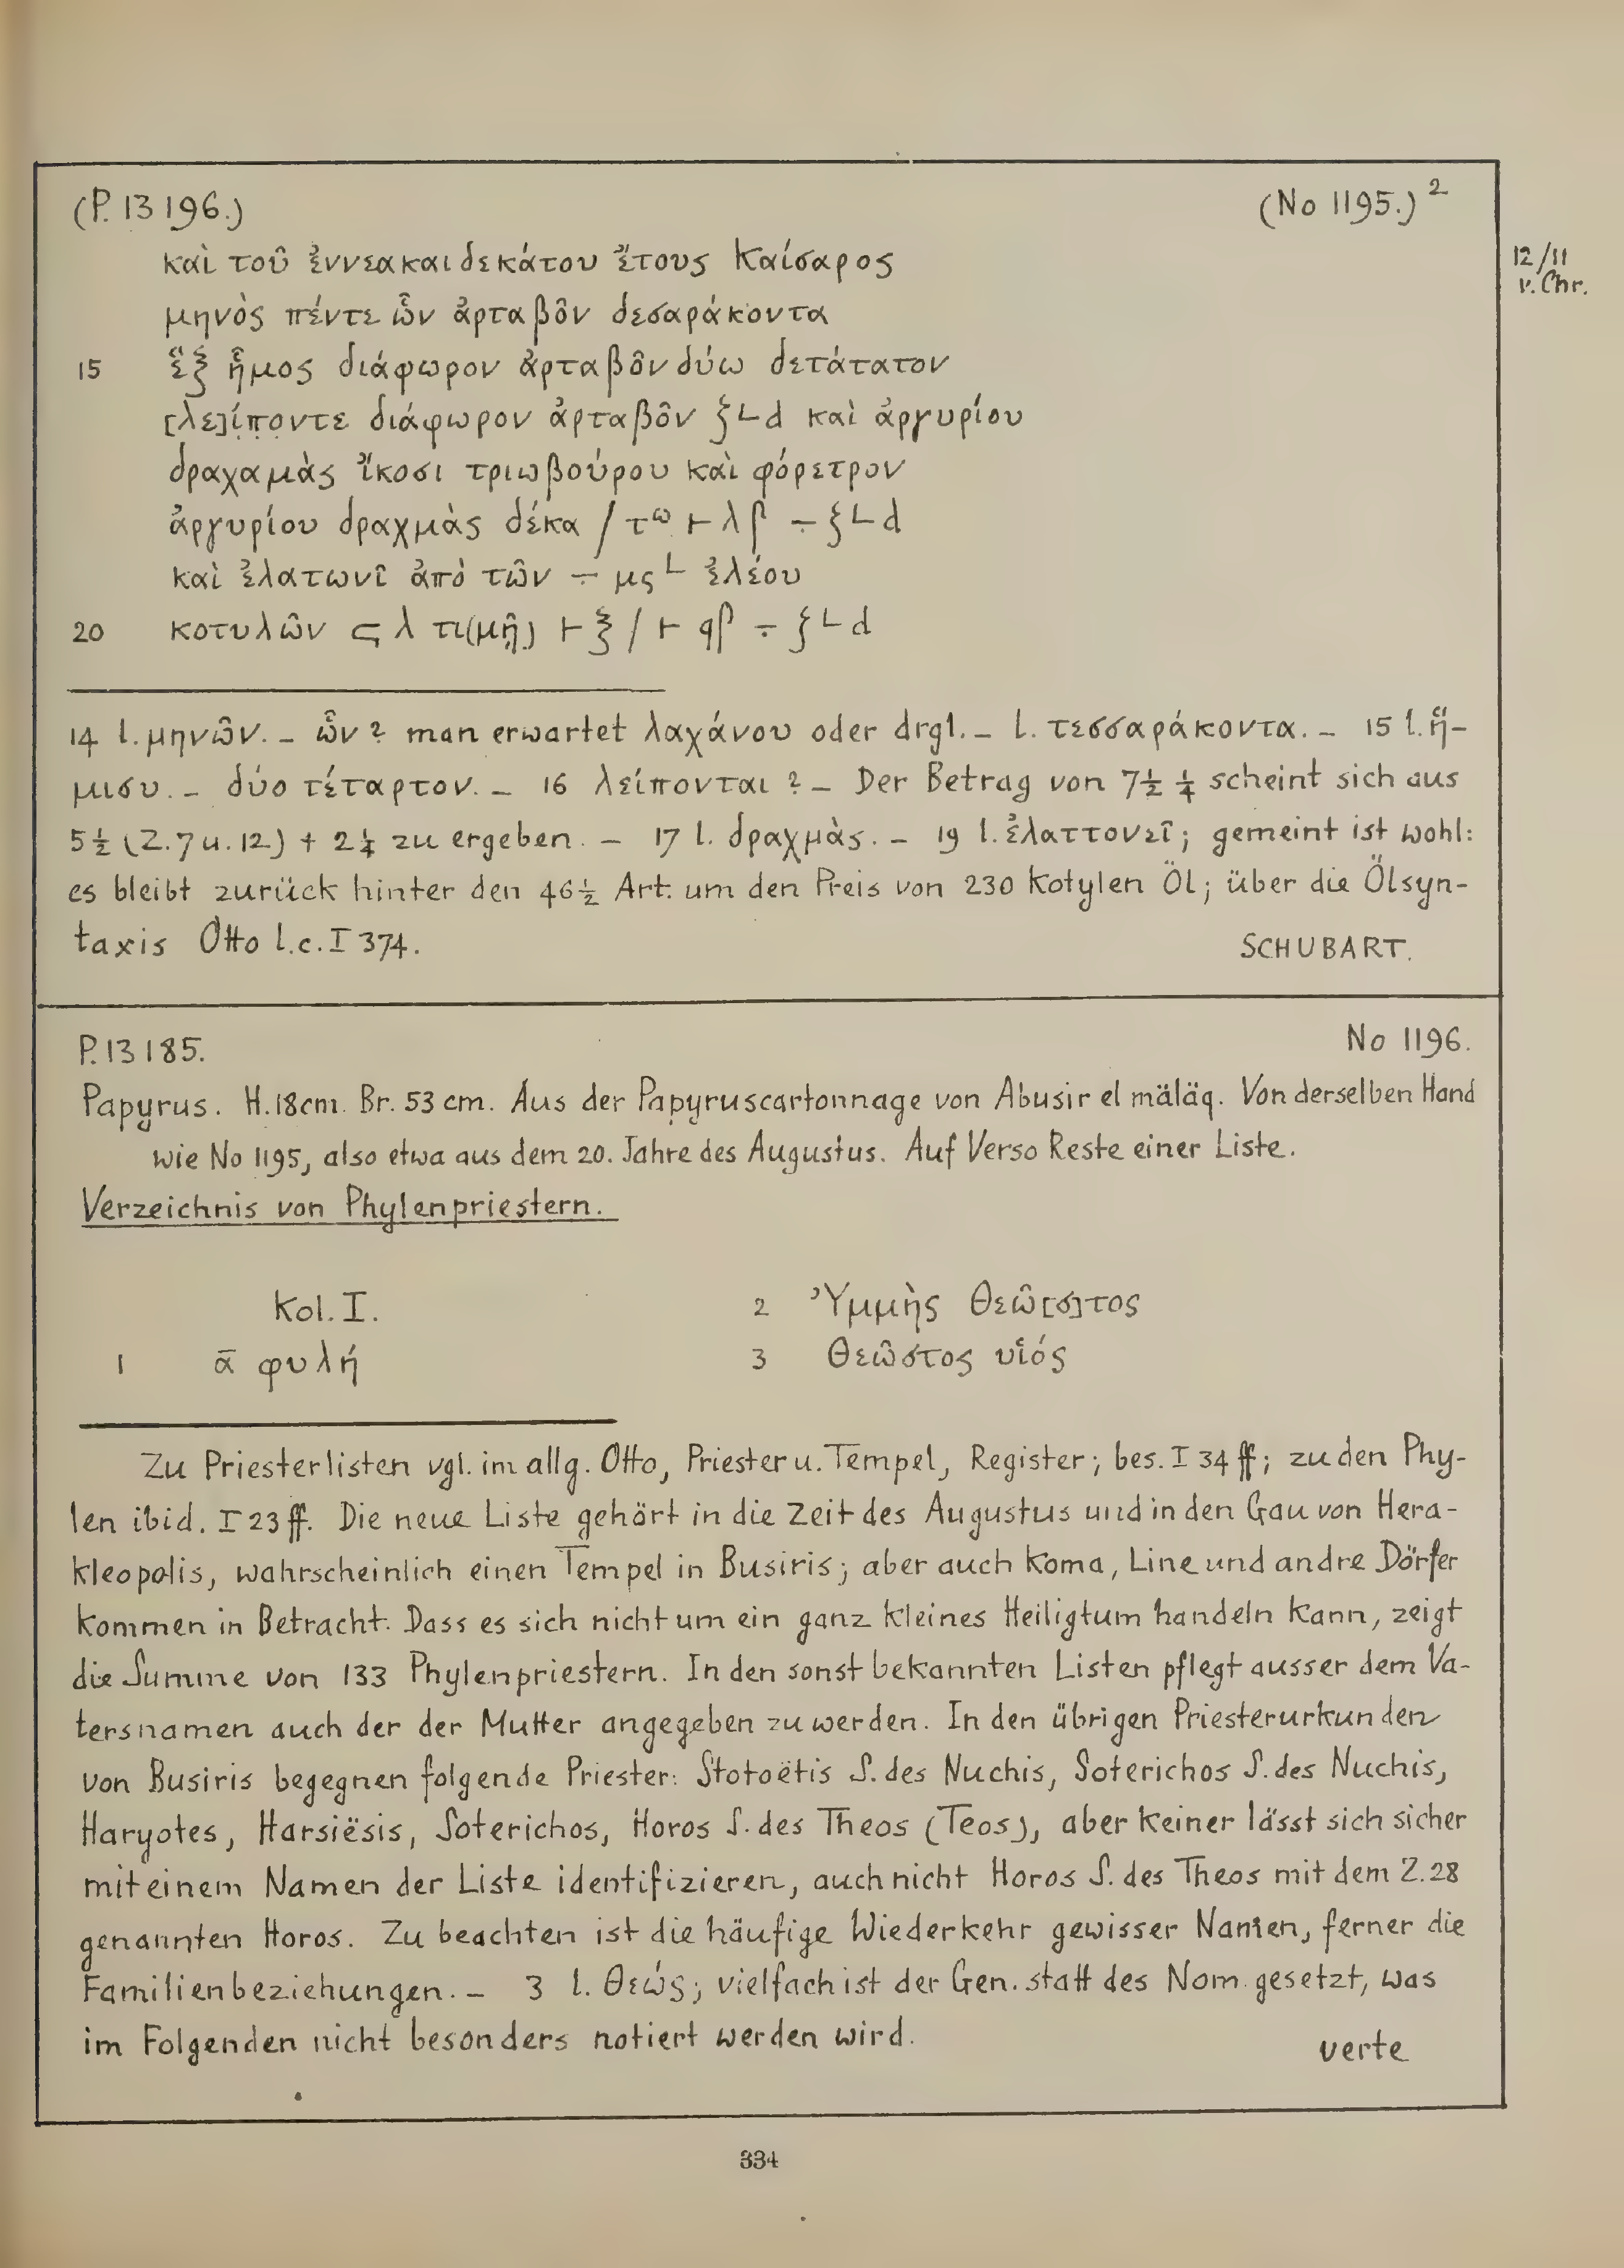 (P. 13196.) (No 1195.)²
12/11
v. Chr.
καὶ τοῦ ἐννεακαιδεκάτου ἔτους Καίσαρος
μηνὸς πέντε ὧν ἀρταβῶν δεσαράκοντα
15 ἓξ ἧμος διάφωρον ἀρταβῶν δύω δετάτατον
[λε]ίποντε διάφωρον ἀρταβῶν ζ∟d καὶ ἀργυρίου
δραχαμὰς ἴκοσι τριωβούρου καὶ φόρετρον
ἀργυρίου δραχμὰς δέκα / τω ⊢ λβ ÷ ζ∟d
καὶ ἐλατωνῖ ἀπὸ τῶν ÷ μς∟ ἐλέου
20 κοτυλῶν ς λ τι(μῆ) ⊢ ξ / ⊢ qβ ÷ ζ∟d
14 l. μηνῶν. – ὧν? man erwartet λαχάνου oder drgl. – l. τεσσαράκοντα. – 15 l. ἥ-
μισυ. – δύο τέταρτον. – 16 λείπονται? – Der Betrag von 7½ ¼ scheint sich aus
5½ (Z. 7 u. 12) + 2¼ zu ergeben. – 17 l. δραχμὰς. – 19 l. ἐλαττονεῖ; gemeint ist wohl:
es bleibt zurück hinter den 46½ Art. um den Preis von 230 Kotylen Öl; über die Ölsyn-
taxis Otto l.c. I 374. SCHUBART.
P. 13185. No 1196.
Papyrus. H. 18cm. Br. 53 cm. Aus der Papyruscartonnage von Abusir el mäläq. Von derselben Hand
wie No 1195, also etwa aus dem 20. Jahre des Augustus. Auf Verso Reste einer Liste.
Verzeichnis von Phylenpriestern.
Kol. I.
1 ᾱ φυλή
2 Ὑμμὴς Θεῶ[σ]τος
3 Θεῶστος υἱός
Zu Priesterlisten vgl. im allg. Otto, Priester u. Tempel, Register; bes. I 34 ff; zu den Phy-
len ibid. I 23 ff. Die neue Liste gehört in die Zeit des Augustus und in den Gau von Hera-
kleopolis, wahrscheinlich einen Tempel in Busiris; aber auch Koma, Line und andre Dörfer
kommen in Betracht. Dass es sich nicht um ein ganz kleines Heiligtum handeln kann, zeigt
die Summe von 133 Phylenpriestern. In den sonst bekannten Listen pflegt ausser dem Va-
tersnamen auch der der Mutter angegeben zu werden. In den übrigen Priesterurkunden
von Busiris begegnen folgende Priester: Stotoëtis S. des Nuchis, Soterichos S. des Nuchis,
Haryotes, Harsiësis, Soterichos, Horos S. des Theos (Teos), aber keiner lässt sich sicher
mit einem Namen der Liste identifizieren, auch nicht Horos S. des Theos mit dem Z. 28
genannten Horos. Zu beachten ist die häufige Wiederkehr gewisser Namen, ferner die
Familienbeziehungen. – 3 l. Θεώς; vielfach ist der Gen. statt des Nom. gesetzt, was
im Folgenden nicht besonders notiert werden wird. verte
334